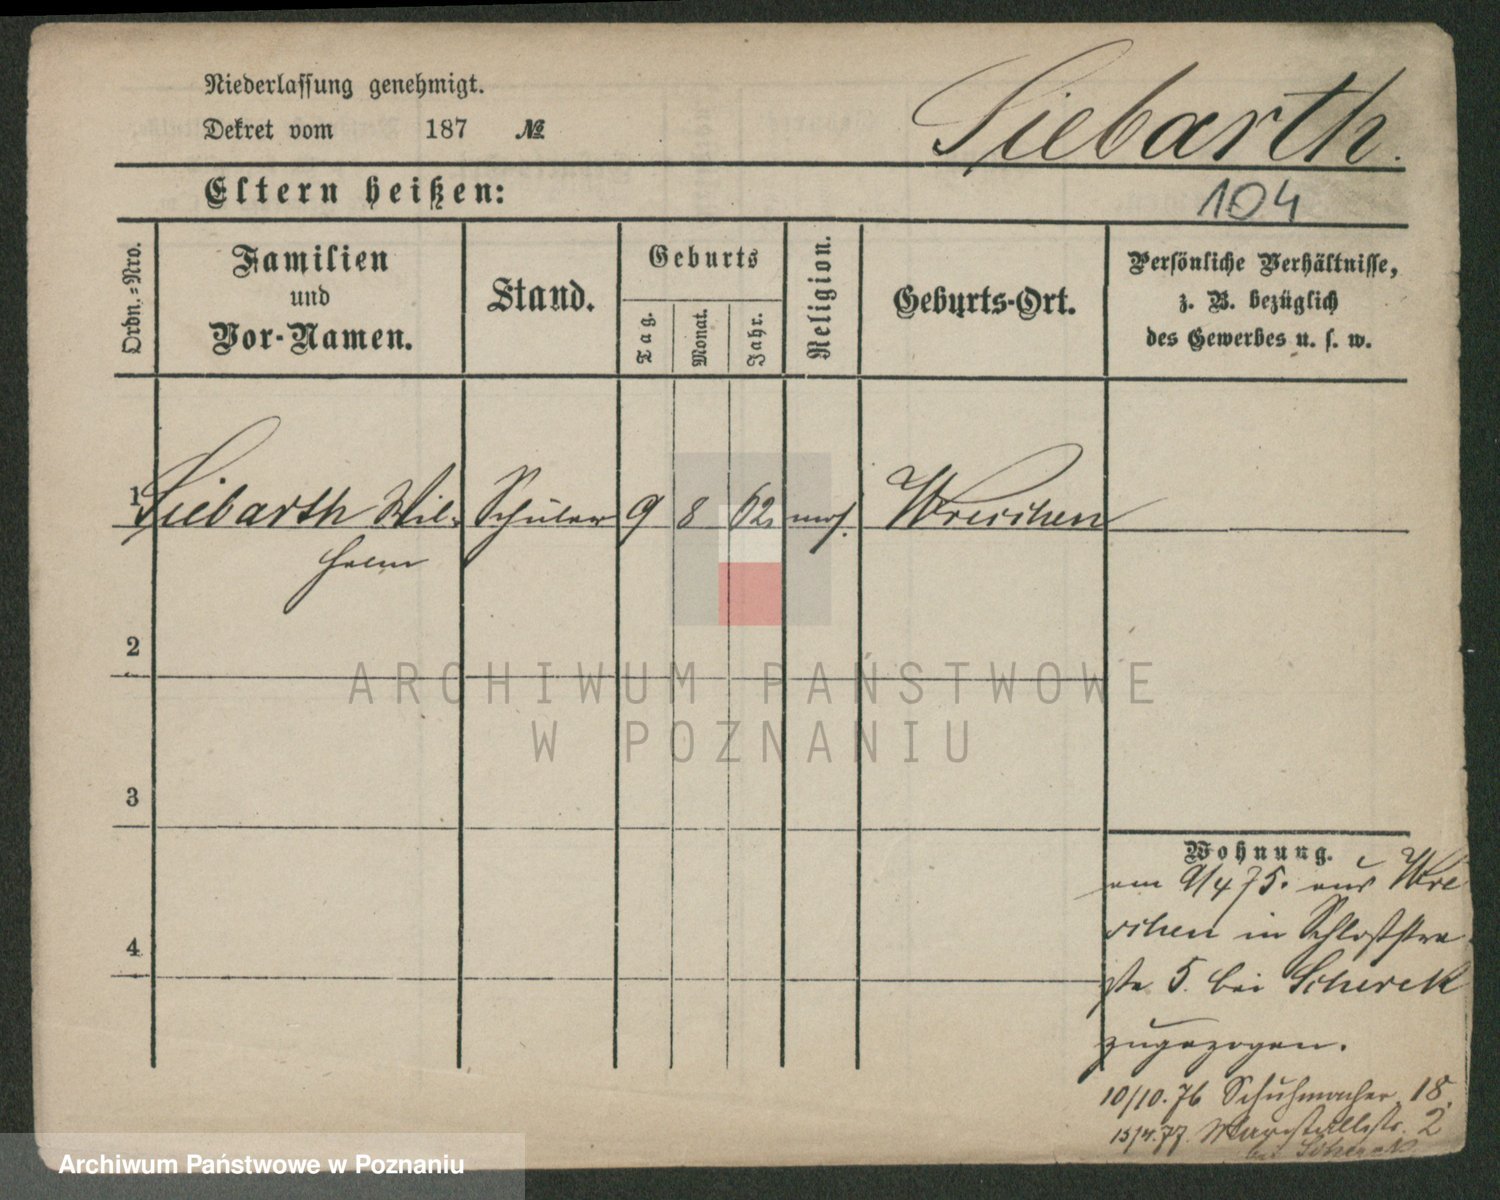 Niederlassung genehmigt.
Dekret vom 187 №
Siebarth.
Eltern heißen:
104
Ordn.=Nro.
Familien
und
Vor-Namen.
Stand.
Geburts
Tag.
Monat.
Jahr.
Religion.
Geburts-Ort.
Persönliche Verhältnisse,
z. B. bezüglich
des Gewerbes u. s. w.
1 Siebarth Wil- Schüler 9 8 62 mos. Wreschen
helm
2
ARCHIWUM PAŃSTWOWE
W POZNANIU
3
4
Wohnung.
am 9/4 75. aus Wre
schen in Schloßstra
ße 5. bei Scherek
zugezogen.
10/10. 76 Schuhmacher 18.
15/4. 77. Marstallstr. 2
bei Scherek
Archiwum Państwowe w Poznaniu